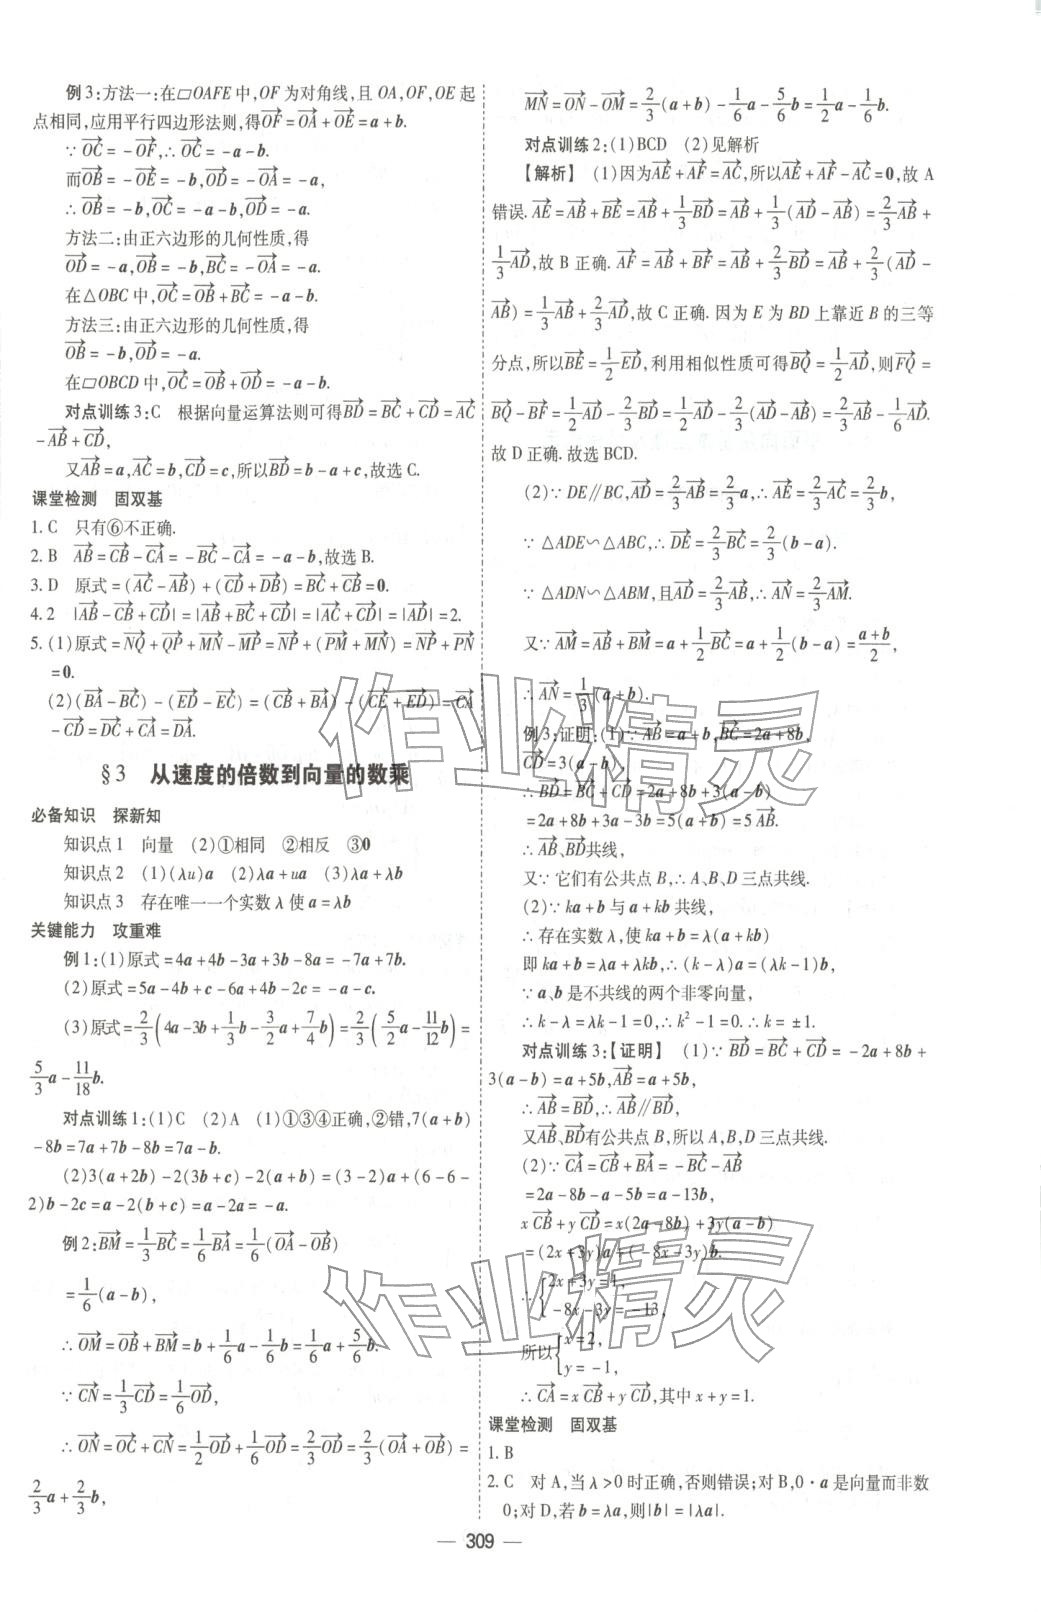 例 3:方法一:在▱OAFE 中,OF 为对角线,且 OA,OF,OE 起
点相同,应用平行四边形法则,得$\overrightarrow{OF}=\overrightarrow{OA}+\overrightarrow{OE}=a+b$.
∵ $\overrightarrow{OC}=-\overrightarrow{OF}$,∴ $\overrightarrow{OC}=-a-b$.
而$\overrightarrow{OB}=-\overrightarrow{OE}=-b$,$\overrightarrow{OD}=-\overrightarrow{OA}=-a$,
∴ $\overrightarrow{OB}=-b$,$\overrightarrow{OC}=-a-b$,$\overrightarrow{OD}=-a$.
方法二:由正六边形的几何性质,得
$\overrightarrow{OD}=-a$,$\overrightarrow{OB}=-b$,$\overrightarrow{BC}=-\overrightarrow{OA}=-a$.
在△OBC 中,$\overrightarrow{OC}=\overrightarrow{OB}+\overrightarrow{BC}=-a-b$.
方法三:由正六边形的几何性质,得
$\overrightarrow{OB}=-b$,$\overrightarrow{OD}=-a$.
在▱OBCD 中,$\overrightarrow{OC}=\overrightarrow{OB}+\overrightarrow{OD}=-a-b$.
对点训练 3:C 根据向量运算法则可得$\overrightarrow{BD}=\overrightarrow{BC}+\overrightarrow{CD}=\overrightarrow{AC}$
$-\overrightarrow{AB}+\overrightarrow{CD}$,
又$\overrightarrow{AB}=a$,$\overrightarrow{AC}=b$,$\overrightarrow{CD}=c$,所以$\overrightarrow{BD}=b-a+c$,故选 C.
课堂检测 固双基
1. C 只有⑥不正确.
2. B $\overrightarrow{AB}=\overrightarrow{CB}-\overrightarrow{CA}=-\overrightarrow{BC}-\overrightarrow{CA}=-a-b$,故选 B.
3. D 原式$=(\overrightarrow{AC}-\overrightarrow{AB})+(\overrightarrow{CD}+\overrightarrow{DB})=\overrightarrow{BC}+\overrightarrow{CB}=0$.
4. 2 $|\overrightarrow{AB}-\overrightarrow{CB}+\overrightarrow{CD}|=|\overrightarrow{AB}+\overrightarrow{BC}+\overrightarrow{CD}|=|\overrightarrow{AC}+\overrightarrow{CD}|=|\overrightarrow{AD}|=2$.
5. (1)原式$=\overrightarrow{NQ}+\overrightarrow{QP}+\overrightarrow{MN}-\overrightarrow{MP}=\overrightarrow{NP}+(\overrightarrow{PM}+\overrightarrow{MN})=\overrightarrow{NP}+\overrightarrow{PN}$
$=0$.
(2)$(\overrightarrow{BA}-\overrightarrow{BC})-(\overrightarrow{ED}-\overrightarrow{EC})=(\overrightarrow{CB}+\overrightarrow{BA})-(\overrightarrow{CE}+\overrightarrow{ED})=\overrightarrow{CA}$
$-\overrightarrow{CD}=\overrightarrow{DC}+\overrightarrow{CA}=\overrightarrow{DA}$.
§3 从速度的倍数到向量的数乘
必备知识 探新知
知识点 1 向量 (2)①相同 ②相反 ③0
知识点 2 (1)(λu)a (2)λa+ua (3)λa+λb
知识点 3 存在唯一一个实数 λ 使 a=λb
关键能力 攻重难
例 1:(1)原式=4a+4b-3a+3b-8a=-7a+7b.
(2)原式=5a-4b+c-6a+4b-2c=-a-c.
(3)原式$=\frac{2}{3}\left(4a-3b+\frac{1}{3}b-\frac{3}{2}a+\frac{7}{4}b\right)=\frac{2}{3}\left(\frac{5}{2}a-\frac{11}{12}b\right)=$
$\frac{5}{3}a-\frac{11}{18}b$.
对点训练 1:(1)C (2)A (1)①③④正确,②错,7(a+b)
-8b=7a+7b-8b=7a-b.
(2)3(a+2b)-2(3b+c)-2(a+b)=(3-2)a+(6-6-
2)b-2c=a-2(b+c)=a-2a=-a.
例 2:$\overrightarrow{BM}=\frac{1}{3}\overrightarrow{BC}=\frac{1}{6}\overrightarrow{BA}=\frac{1}{6}(\overrightarrow{OA}-\overrightarrow{OB})$
$=\frac{1}{6}(a-b)$,
∴ $\overrightarrow{OM}=\overrightarrow{OB}+\overrightarrow{BM}=b+\frac{1}{6}a-\frac{1}{6}b=\frac{1}{6}a+\frac{5}{6}b$.
∵ $\overrightarrow{CN}=\frac{1}{3}\overrightarrow{CD}=\frac{1}{6}\overrightarrow{OD}$,
∴ $\overrightarrow{ON}=\overrightarrow{OC}+\overrightarrow{CN}=\frac{1}{2}\overrightarrow{OD}+\frac{1}{6}\overrightarrow{OD}=\frac{2}{3}\overrightarrow{OD}=\frac{2}{3}(\overrightarrow{OA}+\overrightarrow{OB})=$
$\frac{2}{3}a+\frac{2}{3}b$,
$\overrightarrow{MN}=\overrightarrow{ON}-\overrightarrow{OM}=\frac{2}{3}(a+b)-\frac{1}{6}a-\frac{5}{6}b=\frac{1}{2}a-\frac{1}{6}b$.
对点训练 2:(1)BCD (2)见解析
【解析】 (1)因为$\overrightarrow{AE}+\overrightarrow{AF}=\overrightarrow{AC}$,所以$\overrightarrow{AE}+\overrightarrow{AF}-\overrightarrow{AC}=0$,故 A
错误. $\overrightarrow{AE}=\overrightarrow{AB}+\overrightarrow{BE}=\overrightarrow{AB}+\frac{1}{3}\overrightarrow{BD}=\overrightarrow{AB}+\frac{1}{3}(\overrightarrow{AD}-\overrightarrow{AB})=\frac{2}{3}\overrightarrow{AB}+$
$\frac{1}{3}\overrightarrow{AD}$,故 B 正确. $\overrightarrow{AF}=\overrightarrow{AB}+\overrightarrow{BF}=\overrightarrow{AB}+\frac{2}{3}\overrightarrow{BD}=\overrightarrow{AB}+\frac{2}{3}(\overrightarrow{AD}-$
$\overrightarrow{AB})=\frac{1}{3}\overrightarrow{AB}+\frac{2}{3}\overrightarrow{AD}$,故 C 正确. 因为 E 为 BD 上靠近 B 的三等
分点,所以$\overrightarrow{BE}=\frac{1}{2}\overrightarrow{ED}$,利用相似性质可得$\overrightarrow{BQ}=\frac{1}{2}\overrightarrow{AD}$,则$\overrightarrow{FQ}=$
$\overrightarrow{BQ}-\overrightarrow{BF}=\frac{1}{2}\overrightarrow{AD}-\frac{2}{3}\overrightarrow{BD}=\frac{1}{2}\overrightarrow{AD}-\frac{2}{3}(\overrightarrow{AD}-\overrightarrow{AB})=\frac{2}{3}\overrightarrow{AB}-\frac{1}{6}\overrightarrow{AD}$.
故 D 正确. 故选 BCD.
(2)∵ DE∥BC,$\overrightarrow{AD}=\frac{2}{3}\overrightarrow{AB}=\frac{2}{3}a$,∴ $\overrightarrow{AE}=\frac{2}{3}\overrightarrow{AC}=\frac{2}{3}b$,
∵ △ADE∽△ABC,∴ $\overrightarrow{DE}=\frac{2}{3}\overrightarrow{BC}=\frac{2}{3}(b-a)$.
∵ △ADN∽△ABM,且$\overrightarrow{AD}=\frac{2}{3}\overrightarrow{AB}$,∴ $\overrightarrow{AN}=\frac{2}{3}\overrightarrow{AM}$.
又∵ $\overrightarrow{AM}=\overrightarrow{AB}+\overrightarrow{BM}=a+\frac{1}{2}\overrightarrow{BC}=a+\frac{1}{2}(b-a)=\frac{a+b}{2}$,
∴ $\overrightarrow{AN}=\frac{1}{3}(a+b)$.
例 3:证明:(1)∵ $\overrightarrow{AB}=a+b$,$\overrightarrow{BC}=2a+8b$,
$\overrightarrow{CD}=3(a-b)$,
∴ $\overrightarrow{BD}=\overrightarrow{BC}+\overrightarrow{CD}=2a+8b+3(a-b)$
$=2a+8b+3a-3b=5(a+b)=5\overrightarrow{AB}$.
∴ $\overrightarrow{AB}$、$\overrightarrow{BD}$共线,
又∵ 它们有公共点 B,∴ A、B、D 三点共线.
(2)∵ ka+b 与 a+kb 共线,
∴ 存在实数 λ,使 ka+b=λ(a+kb)
即 ka+b=λa+λkb,∴ (k-λ)a=(λk-1)b,
∵ a、b 是不共线的两个非零向量,
∴ k-λ=λk-1=0,∴ k²-1=0. ∴ k=±1.
对点训练 3:【证明】 (1)∵ $\overrightarrow{BD}=\overrightarrow{BC}+\overrightarrow{CD}=-2a+8b+$
$3(a-b)=a+5b$,$\overrightarrow{AB}=a+5b$,
∴ $\overrightarrow{AB}=\overrightarrow{BD}$,∴ $\overrightarrow{AB}∥\overrightarrow{BD}$,
又$\overrightarrow{AB}$、$\overrightarrow{BD}$有公共点 B,所以 A,B,D 三点共线.
(2)∵ $\overrightarrow{CA}=\overrightarrow{CB}+\overrightarrow{BA}=-\overrightarrow{BC}-\overrightarrow{AB}$
$=2a-8b-a-5b=a-13b$,
$x\overrightarrow{CB}+y\overrightarrow{CD}=x(2a-8b)+3y(a-b)$
$=(2x+3y)a+(-8x-3y)b$.
∴ $\begin{cases}2x+3y=1,\\-8x-3y=-13,\end{cases}$
所以$\begin{cases}x=2,\\y=-1,\end{cases}$
∴ $\overrightarrow{CA}=x\overrightarrow{CB}+y\overrightarrow{CD}$,其中 x+y=1.
课堂检测 固双基
1. B
2. C 对 A,当 λ>0 时正确,否则错误;对 B,0·a 是向量而非数
0;对 D,若 b=λa,则|b|=|λa|.
— 309 —
作业精灵
作业精灵